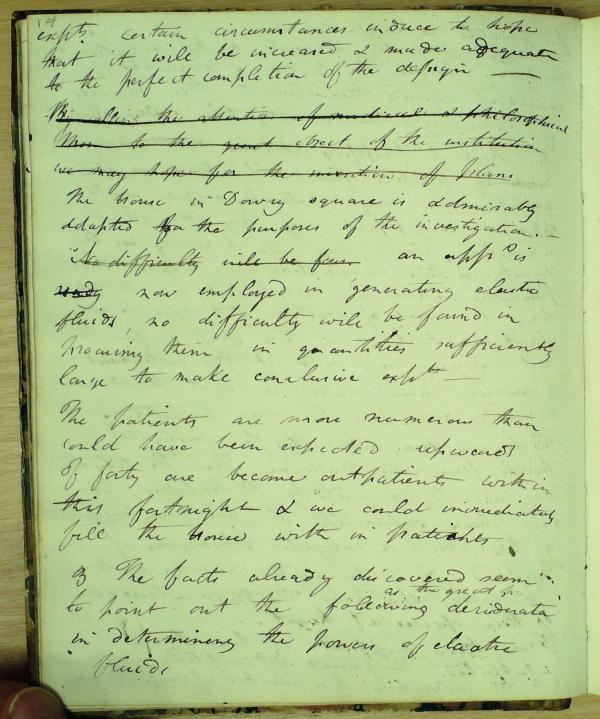 14
expts certain circumstances induce the hope
that it will be increased & made adequate
to the perfect completion of the design —
By calling the attention of medical & philosophical
Men to the great object of the institution
we may hope for the of
The house in Dowry square is admirably
adapted for the purposes of the investigation. —
No difficulty will be foun an apps is
ready now employed in generating elastic
fluids, no difficulty will be found in
procuring them in quantities sufficiently
large to make conclusive expts —
The patients are more numerous than
could have been expected upwards
of forty are become outpatients within
this fortnight & we could immediately
fill the house with in patients
3 The facts already discovered seem
as the great
to point out the following desiderata
in determining the powers of elastic
fluids